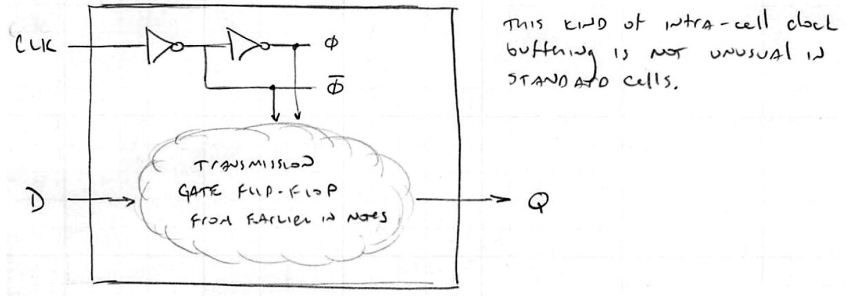 THIS KIND OF INTRA-CELL CLOCK
BUFFERING IS NOT UNUSUAL IN
STANDARD CELLS.
CLK
φ
φ̅
TRANSMISSION
GATE FLIP-FLOP
FROM EARLIER IN NOTES
D
Q